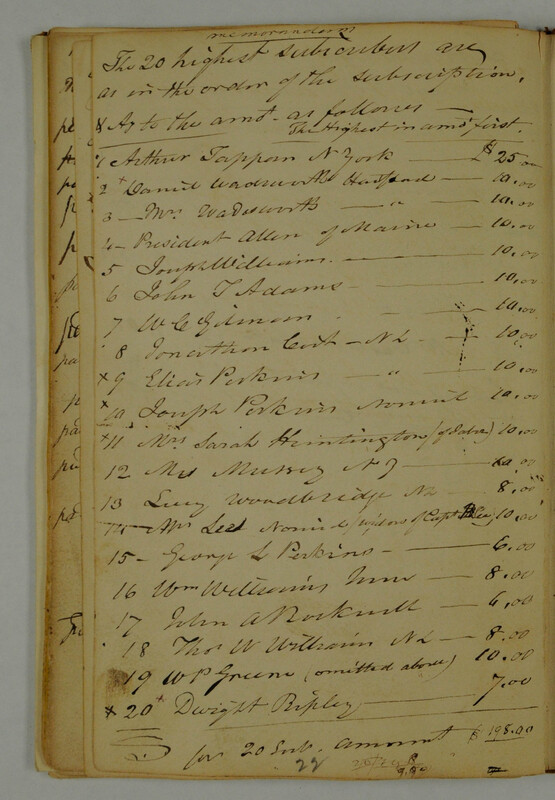 memorandum
The 20 highest subscribers are
as in the order of the subscription,
& As to the amt. as follows —
The Highest in amt first.
1 Arthur Tappan N York — $ 25.00
2 + Daniel Wadsworth Hartford — 10.00
3 — Mrs Wadsworth — " — 10.00
4 — President Allen of Maine — 10.00
5 Joseph Williams. — 10.00
6 John T Adams — 10.00
7 W C Gilman — 10.00
8 Jonathan Coit — N L — 10.00
x 9 Elias Perkins " — 10.00
x 10 Joseph Perkins Norwich 10.00
x 11 Mrs Sarah Huntington (of Jabez) 10.00
12 Mrs Mussey N — 10.00
13 Lucy Woodbridge N L — 8.00
14 — Mrs Lee Norwich (widow of Capt Lee) 10.00
15 — George L Perkins — 6.00
16 Wm Williams Junr — 8.00
17 John A Rockwell — 6.00
18 Thos W Williams N L — 8.00
19 W P Greene (omitted above) 10.00
x 20 + Dwight Ripley — 7.00
for 20 Sub. amount $ 198.00
22
9.90